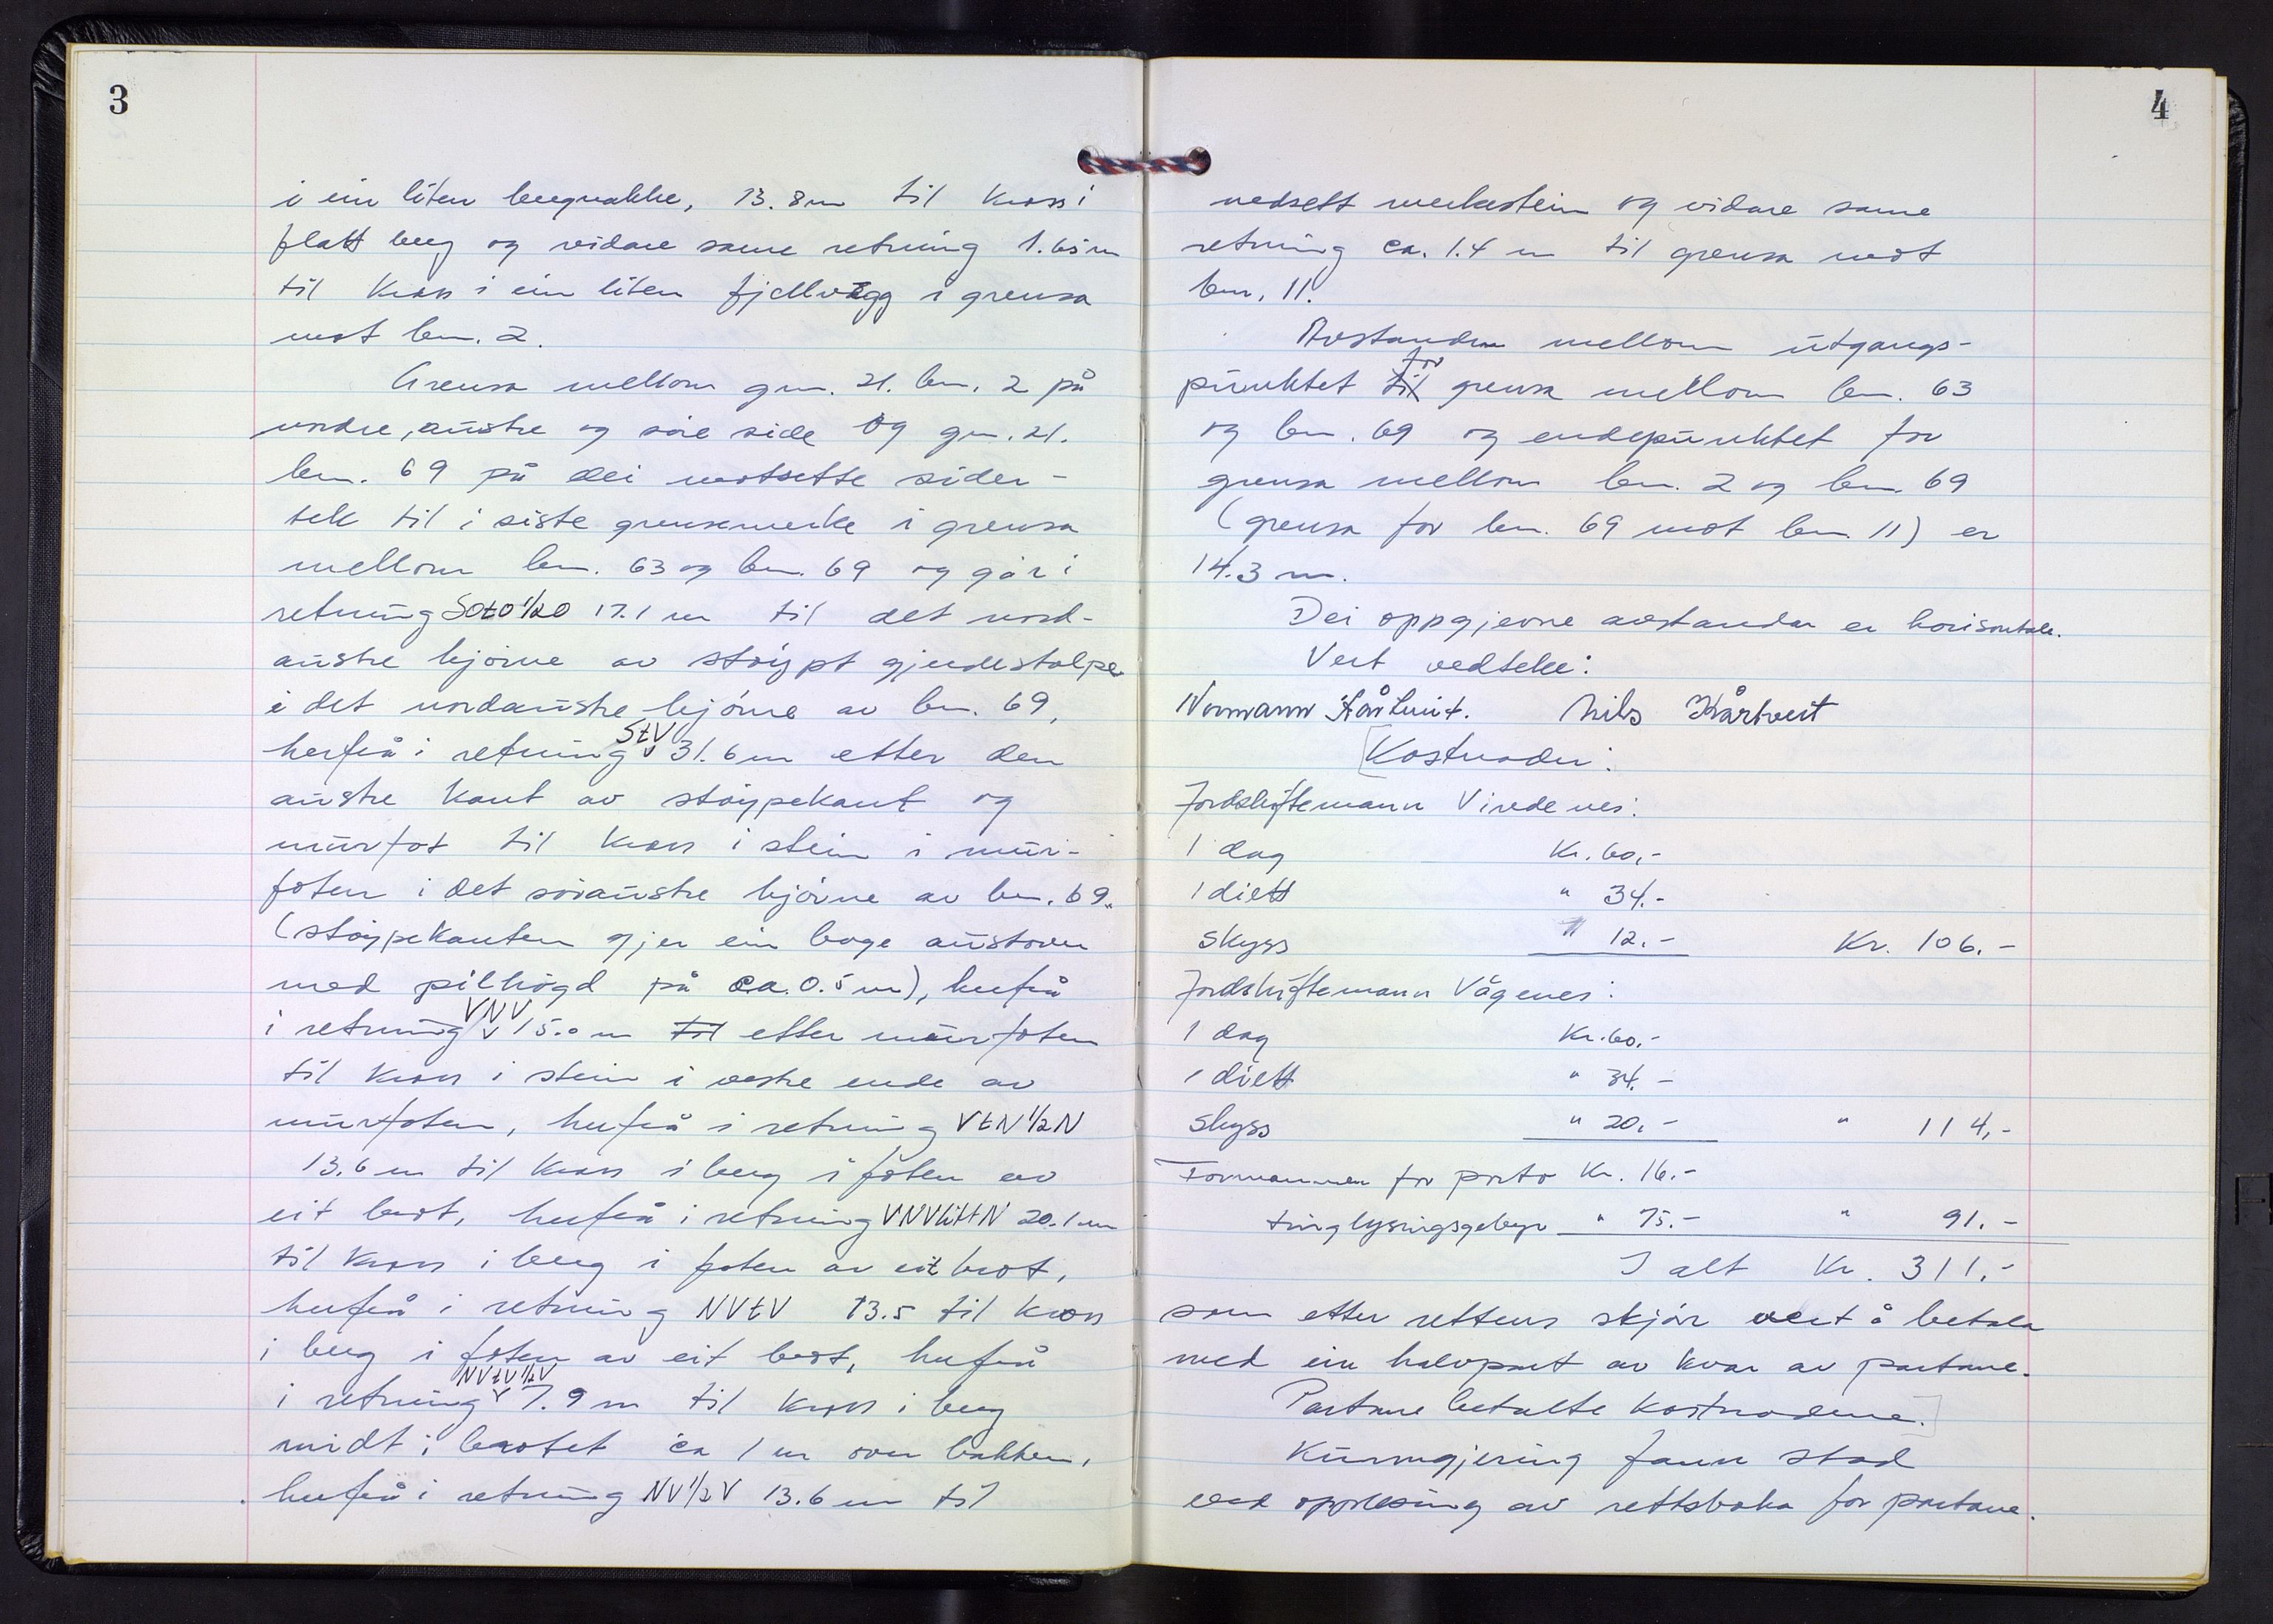 3
i ein liten bergnakke, 13.8m til kross i
flatt berg og vidare same retning 1.65m
til kross i ein liten fjellvegg i grensa
mot bnr. 2.
Grensa mellom gnr. 21. bnr. 2 på
nordre, austre og søre side og gnr. 21.
bnr. 69 på dei motsette sider -
tek til i siste grensemerke i grensa
mellom bnr. 63 og bnr. 69 og går i
retning SOtO 1/2 O 17.1 m til det nord-
austre hjørne av støypt gjerdestolpe
i det nordaustre hjørne av bnr. 69,
herfrå i retning StV 31.6 m etter den
austre kant av støypekant og
murfot til kross i stein i mur-
foten i det søraustre hjørne av bnr. 69.
(støypekanten gjer ein boge austover
med pilhøgd på ca. 0.5 m), herfrå
i retning VNV 15.0 m til etter murfoten
til kross i stein i vestre ende av
murfoten, herfrå i retning VtN 1/2 N
13.6 m til kross i berg i foten av
eit brot, herfrå i retning VNVlittN 20.1 m
til kross i berg i foten av eit brot,
herfrå i retning NVtV 13.5 til kross
i berg i foten av eit brot, herfrå
i retning NVtV 1/2 V 7.9 m til kross i berg
midt i brotet ca 1 m over bakken,
herfrå i retning NV 1/2 V 13.6 m til
4
nedsett merkestein og vidare same
retning ca. 1.4 m til grensa mot
bnr. 11.
Avstanden mellom utgangs-
punktet til for grensa mellom bnr. 63
og bnr. 69 og endepunktet for
grensa mellom bnr. 2 og bnr. 69
(grensa for bnr. 69 mot bnr. 11) er
14.3 m.
Dei oppgjevne avstandar er horisontale.
Vert vedteke:
Normann Kårtveit. Nils Kårtveit
[Kostnader:
Jordskiftemann Vindenes:
1 dag Kr. 60,-
1 diett " 34.-
Skyss " 12.- Kr. 106.-
Jordskiftemann Vågenes:
1 dag Kr. 60.-
1 diett " 34.-
Skyss " 20.- " 114,-
Formannen for porto Kr. 16.-
tinglysningsgebyr " 75.- " 91.-
I alt Kr. 311.-
som etter rettens skjør vert å betala
med ein halvpart av kvar av partane.
Partane betalte kostnadene.]
Kunngjering fann stad
ved opplesing av rettsboka for partane.